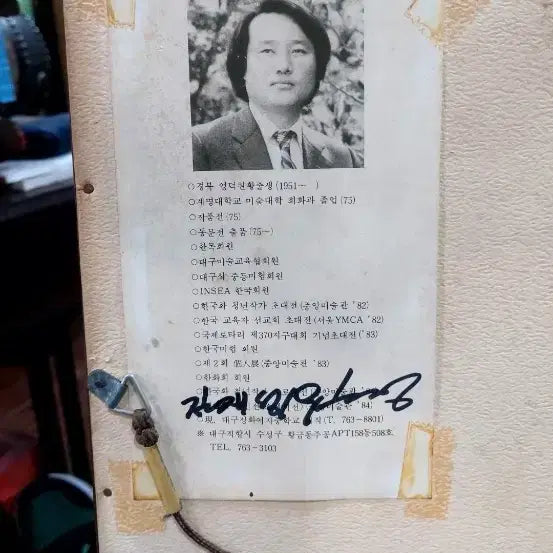 ○경북 영덕현황출생(1951~ )
○계명대학교 미술대학 회화과 졸업(75)
○작품전(75)
○동문전 출품(75~)
○한독회원
○대구미술교육협회원
○대구시 중등미협회원
○INSEA 한국회원
○한국화 청년작가 초대전(중앙미술관 '82)
○한국 교육자 선교회 초대전(서울YMCA '82)
○국제로타리 제370지구대회 기념초대전('83)
○한국미협 회원
○제2회 個人展(중앙미술관 '83)
○한화회 회원
'84)
○現, 대구정화여자중학교 (T. 763-8801)
※ 대구직할시 수성구 황금동주공APT158동508호
TEL. 763-3103